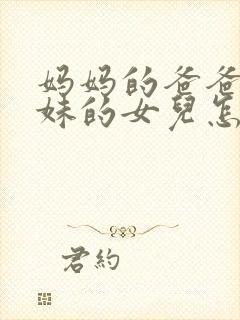 妈妈的爸爸
妹的女兒怎
君約